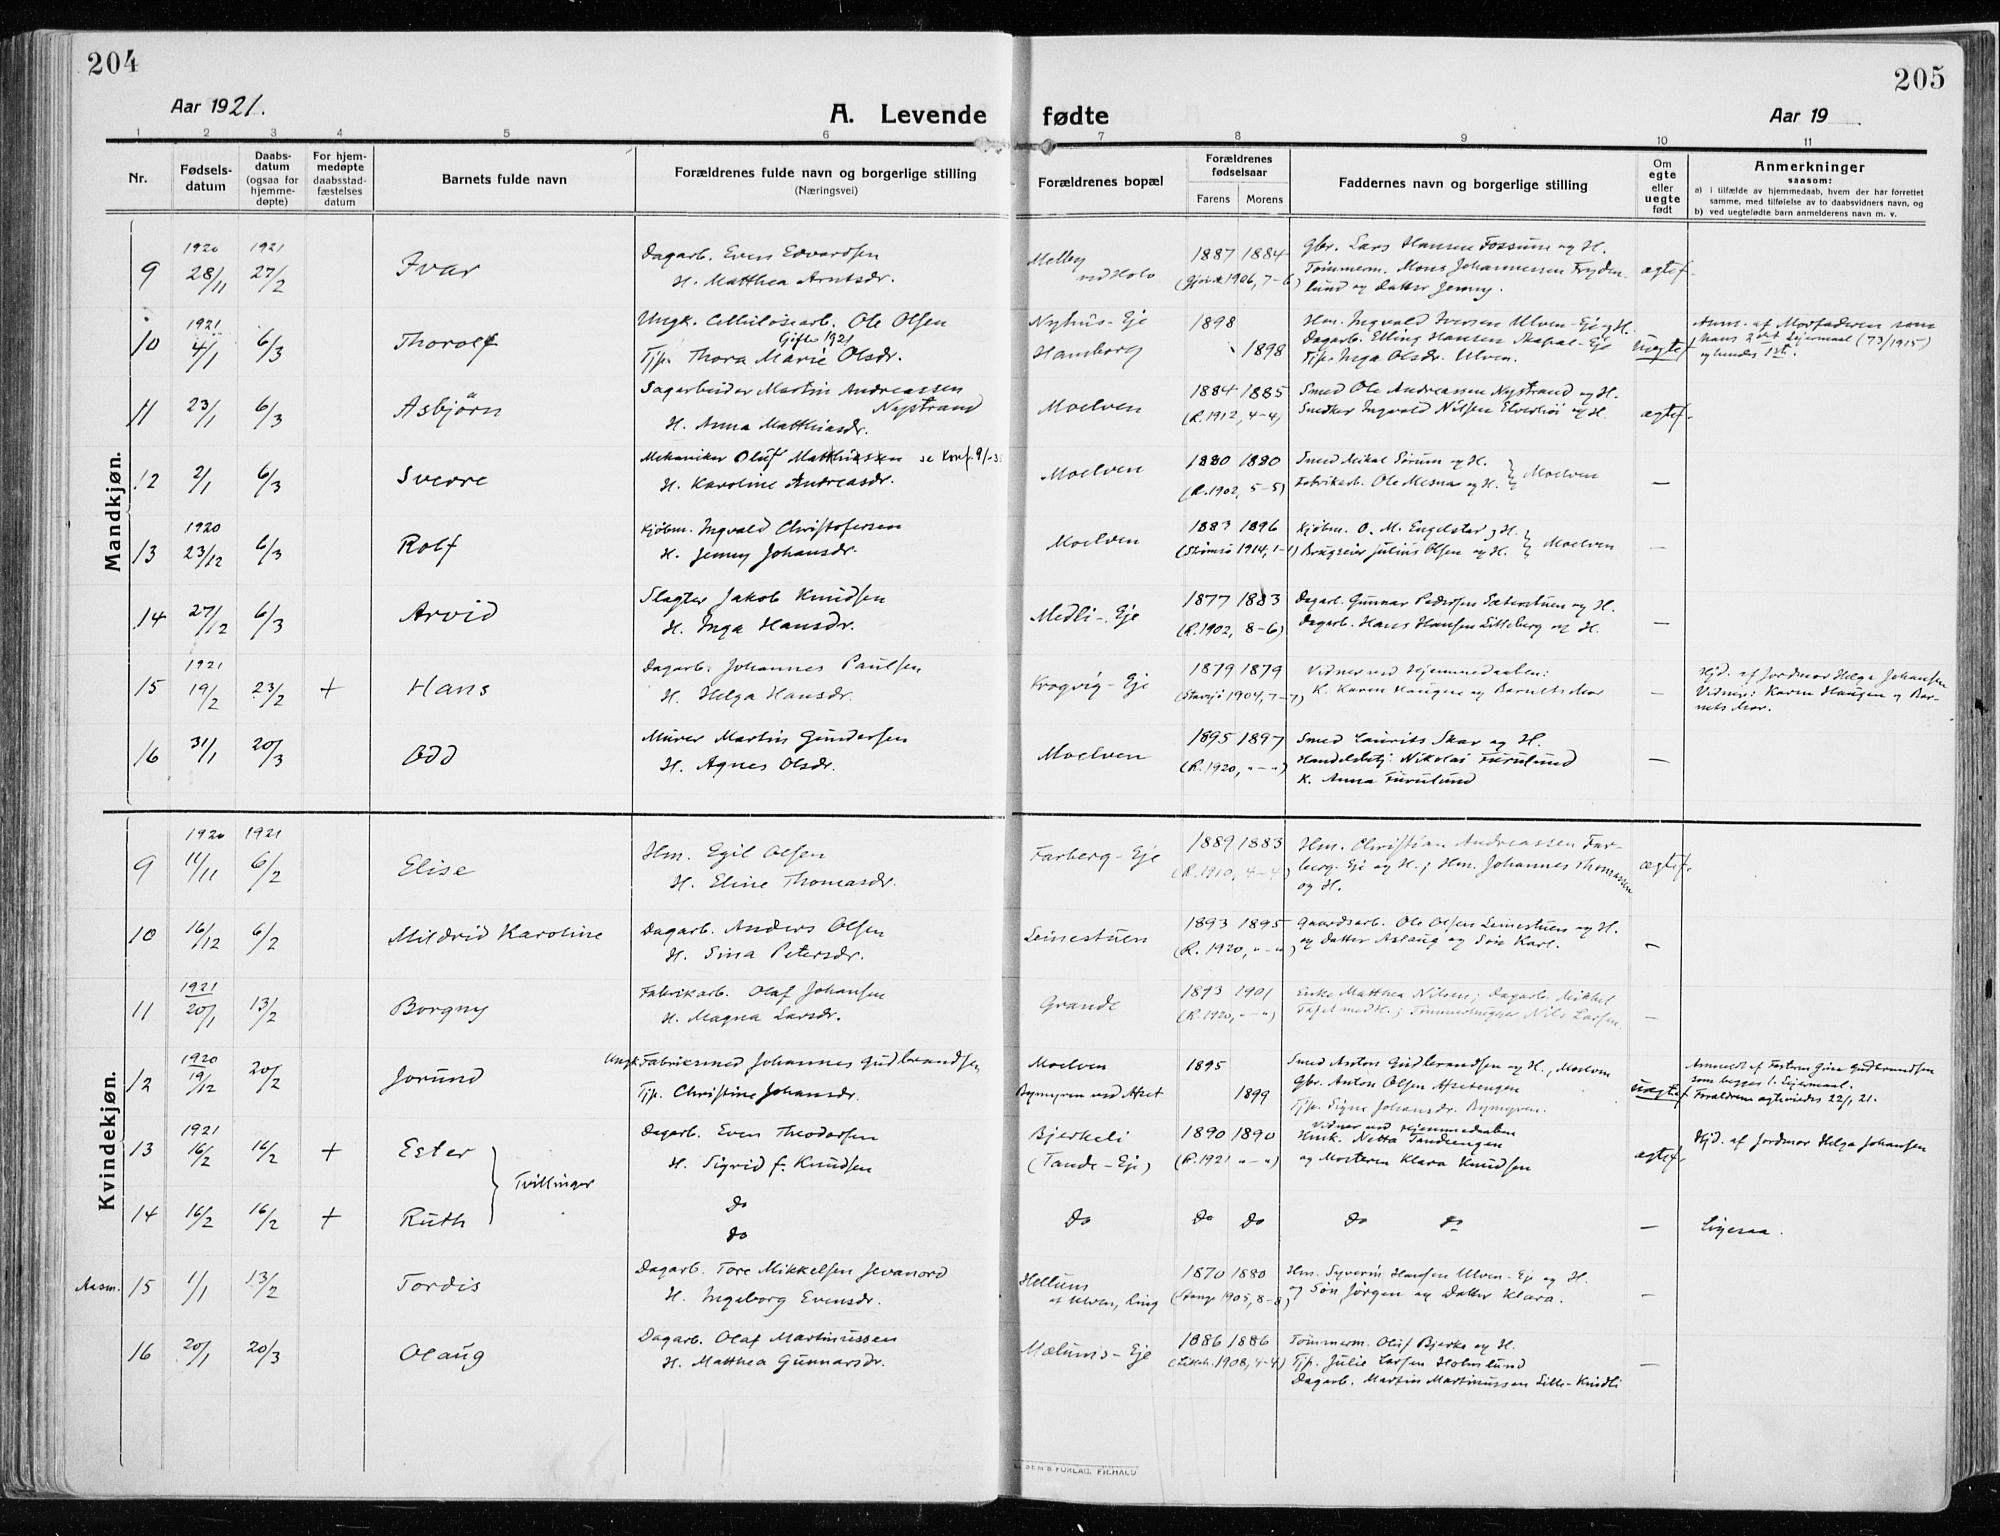 204
205
Aar 1921.
A. Levende fødte
Aar 19
1 2 3 4 5 6 7 8 9 10 11
Nr.
Fødsels-
datum
Daabs-
datum
(ogsaa for
hjemme-
døpte)
For hjem-
medøpte
daabsstad-
fæstelses
datum
Barnets fulde navn
Forældrenes fulde navn og borgerlige stilling
(Næringsvei)
Forældrenes bopæl
Forældrenes
fødselsaar
Farens Morens
Faddernes navn og borgerlige stilling
Om
egte
eller
uegte
født
Anmerkninger
saasom:
a) i tilfælde av hjemmedaab, hvem der har forrettet
samme, med tilføielse av to daabsvidners navn, og
b) ved uegtefødte barn anmelderens navn m. v.
Mandkjøn.
1920 1921 Dagarb. Even Edvardsen Melby 1887 1884 Gbr. Lars Hansen Fossum og H.
9 28/11 27/2 Ivar H. Matthea Arntsdr. ved Holo (Gjøvik 1906, 7-6) Tømmerm. Mons Johannessen Fryden- ægtef.
lund og Datter Jenny.
1921 Ungk. Cellulosearb. Ole Olsen Nyhus-Eje 1898 Hm. Ingvald Iversen Ulven-Eje og H. Anm. af Morfaderen som
Gifte 1921
10 4/1 6/3 Thorolf Tjp. Thora Marie Olsdr. Hamborg 1898 Dagarb. Elling Hansen Skapal-Eje uegtef. hans 2det Lejermaal (73/1915)
Tjp. Inga Olsdr. Ulven. og hendes 1st.
Sagarbeider Martin Andreassen 1884 1885 Smed Ole Andreassen Nystrand og H.
11 23/1 6/3 Asbjørn Nystrand Moelven (R. 1912, 4-4) Snedker Ingvald Nilsen Elverhöi og H. ægtef.
H. Anna Matthiasdr.
Mekaniker Oluf Matthissen se Konf. 9/-35 1880 1880 Smed Mikal Sörum og H.
12 2/1 6/3 Sverre H. Karoline Andreasdr. Moelven (R. 1902, 5-5) Fabrikarb. Ole Mesna og H. } Moelven —
1920 Kjøbm. Ingvald Christofersen 1883 1896 Kjøbm. O. M. Engelstad og H.
13 23/12 6/3 Rolf H. Jenny Johansdr. Moelven (Strömsö 1914, 1-1) Brugseier Julius Olsen og H. } Moelven —
Slagter Jakob Knudsen 1877 1883 Dagarb. Gunnar Pedersen Sæterstuen og H.
14 27/12 6/3 Arvid H. Inga Hansdr. Medli-Eje (R. 1902, 8-6) Dagarb. Hans Hansen Litteberg og H. —
1921 Dagarb. Johannes Paulsen 1879 1879 Vidner ved Hjemmedaaben: Hjd. af Jordmor Helga Johansen
15 19/2 23/2 + Hans H. Helga Hansdr. Krogvig-Eje (Stavsjö 1904, 7-7) K. Karen Haugen og Barnets Mor — Vidner: Karen Haugen og Bar-
nets Mor.
Murer Martin Gundersen 1895 1897 Smed Laurits Skar og H.
16 31/1 20/3 Odd H. Agnes Olsdr. Moelven (R. 1920, "-") Handelsbetj. Nikolai Furulund —
K. Anna Furulund
Kvindekjøn.
1920 1921 Hm. Egil Olsen 1889 1883 Hm. Christian Andreassen Far-
9 11/11 6/2 Elise H. Eline Thomasdr. Farberg-Eje (R. 1910, 4-4) berg-Eje og H.; Hm. Johannes Thomassen ægtef.
og H.
10 16/12 6/2 Mildrid Karoline Dagarb. Anders Olsen Leinestuen 1893 1895 Gaardsarb. Ole Olsen Leinestuen og H.
H. Sina Petersdr. (R. 1920, "-") og Datter Aslaug og Sön Karl. —
1921 Fabrikarb. Olaf Johansen 1893 1901 Enke Matthea Nilsen; Dagarb. Mikkel
11 20/1 13/2 Borgny H. Magna Larsdr. Grande (R. 1920, "-") med H.; Tömmerhugger Nils Larsen. —
1920 Ungk. Fabriksmed Johannes Gudbrandsen Moelven 1895 Smed Anton Gudbrandsen og H., Moelven Anmeldt af Fasteren Gina Gudbrandsen
12 19/12 20/2 Jorund Tjp. Christine Johansdr. Bymyren ved Afset 1899 Gbr. Anton Olsen Afsetengen uægtef. som begges 1. Lejermaal.
Tjp. Signe Johansdr. Bymyren. Foraldrene agtviedes 22/1 21.
1921 Dagarb. Even Theodorsen Bjerkeli 1890 1890 Vidner ved Hjemmedaaben Hjd. af Jordmor Helga Johansen
13 16/2 16/2 + Ester H. Sigrid f. Knudsen (Tande-Eje) (R. 1921 "-") Husk. Netta Tandengen ægtef.
og Mosteren Klara Knudsen
Tvillinger
14 16/2 16/2 + Ruth Do Do Do Do Do Do Do — Ligesaa.
Dagarb. Tore Mikkelsen Jevanord Hellum 1870 1880 Hm. Syverin Hansen Ulven-Eje og H.
Aasm. 15 1/1 13/2 Tordis H. Ingeborg Evensdr. af Ulven, Ring (Stange 1905, 8-8) og Sön Jörgen og Datter Klara. —
Dagarb. Olaf Martinussen 1886 1886 Tömmerm. Oluf Bjerke og H.
16 20/1 20/3 Olaug H. Matthea Gunnarsdr. Mælums-Eje (Lilleh. 1908, 4-4) Tjp. Julie Larsen Holmlund —
Dagarb. Martin Martinussen Lille-Kindli
FORLAG, FR.HALD